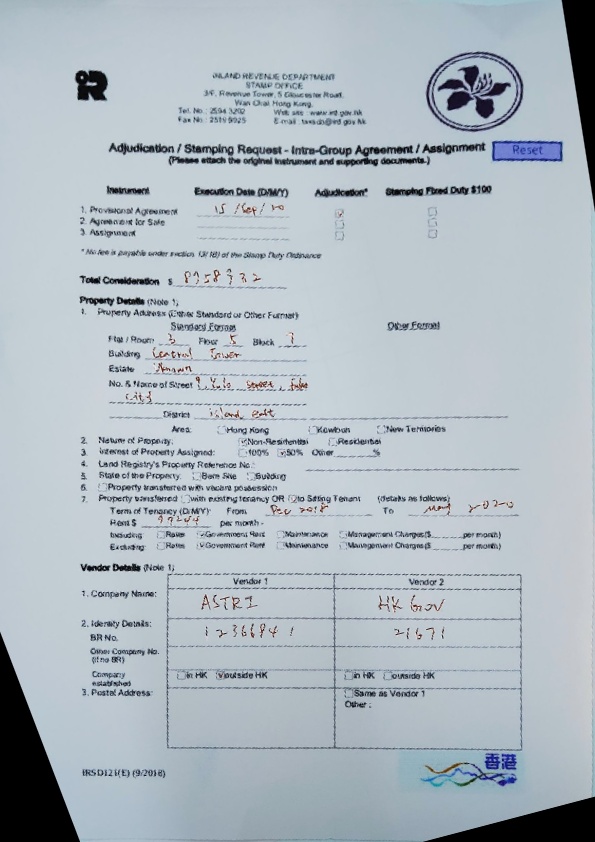 INLAND REVENUE DEPARTMENT
STAMP OFFICE
3/F, Revenue Tower, 5 Gloucester Road,
Wan Chai, Hong Kong.
Tel. No.: 2594 3202 Web site : www.ird.gov.hk
Fax No.: 2519 9025 E-mail : taxsdo@ird.gov.hk
Adjudication / Stamping Request - Intra-Group Agreement / Assignment
Reset
(Please attach the original instrument and supporting documents.)
Instrument Execution Date (D/M/Y) Adjudication* Stamping Fixed Duty $100
1. Provisional Agreement 15 /Sep/
2. Agreement for Sale
3. Assignment
* No fee is payable under section 13(18) of the Stamp Duty Ordinance
Total Consideration $
Property Details (Note 1)
1. Property Address (Either Standard or Other Format)
Standard Format Other Format
Flat / Room 3 Floor 5 Block
Building Central Tower
Estate Unknown
No. & Name of Street Street, Fake
City
District island east
Area: Hong Kong Kowloon New Territories
2. Nature of Property: Non-Residential Residential
3. Interest of Property Assigned: 100% 50% Other %
4. Land Registry's Property Reference No.:
5. State of the Property: Bare Site Building
6. Property transferred with vacant possession
7. Property transferred with existing tenancy OR to Sitting Tenant (details as follows)
Term of Tenancy (D/M/Y): From Dec 2018 To May 2020
Rent $ per month -
Including: Rates Government Rent Maintenance Management Charges($ per month)
Excluding: Rates Government Rent Maintenance Management Charges($ per month)
Vendor Details (Note 1)
Vendor 1 Vendor 2
1. Company Name: ASTRI HK Gov
2. Identity Details:
BR No. 12366841 21671
Other Company No.
(if no BR)
Company
established in HK outside HK in HK outside HK
3. Postal Address: Same as Vendor 1
Other :
IRSD121(E) (9/2018)
香港